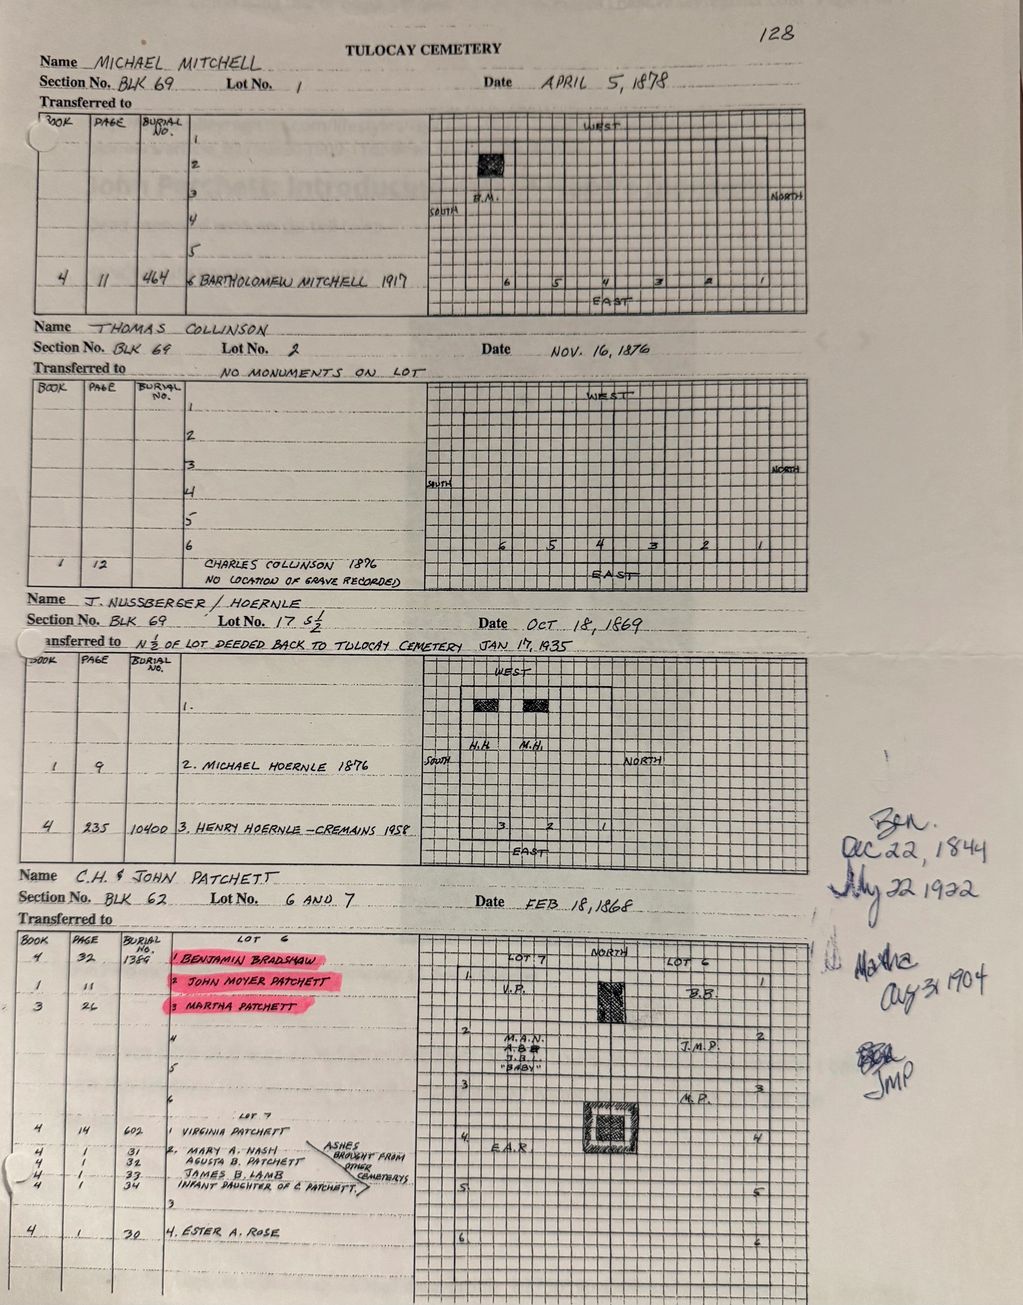 128
TULOCAY CEMETERY
Name MICHAEL MITCHELL
Section No. BLK 69 Lot No. 1 Date APRIL 5, 1878
Transferred to
BOOK PAGE BURIAL NO.
1
2
3
4
5
4 11 464 6 BARTHOLOMEW MITCHELL 1917
WEST
B.M.
SOUTH NORTH
6 5 4 3 2 1
EAST
Name THOMAS COLLINSON
Section No. BLK 69 Lot No. 2 Date NOV. 16, 1876
Transferred to NO MONUMENTS ON LOT
BOOK PAGE BURIAL NO.
1
2
3
4
5
6
1 12 CHARLES COLLINSON 1876
NO LOCATION OF GRAVE RECORDED
WEST
SOUTH NORTH
6 5 4 3 2 1
EAST
Name J. NUSSBERGER / HOERNLE
Section No. BLK 69 Lot No. 17 S½ Date OCT 18, 1869
ansferred to N ½ OF LOT DEEDED BACK TO TULOCAY CEMETERY JAN 17, 1935
BOOK PAGE BURIAL NO.
1.
1 9 2. MICHAEL HOERNLE 1876
4 235 10400 3. HENRY HOERNLE - CREMAINS 1958
WEST
H.H. M.H.
SOUTH NORTH
3 2 1
EAST
Name C.H. & JOHN PATCHETT
Section No. BLK 62 Lot No. 6 AND 7 Date FEB 18, 1868
Transferred to
BOOK PAGE BURIAL NO. LOT 6
4 32 1389 1 BENJAMIN BRADSHAW
1 11 2 JOHN MOYER PATCHETT
3 26 3 MARTHA PATCHETT
4
5
6
LOT 7
4 14 602 1 VIRGINIA PATCHETT
4 1 31 2. MARY A. NASH
4 1 32 AGUSTA B. PATCHETT
4 1 33 JAMES B. LAMB
4 1 34 INFANT DAUGHTER OF C. PATCHETT
ASHES
BROUGHT FROM
OTHER
CEMETERYS
3
4 1 30 4. ESTER A. ROSE
NORTH
LOT 7 LOT 6
1. 1
V.P. B.B.
2 2
M.A.N.
A.B.
J.B.L.
"BABY"
J.M.P.
3 3
M.P.
4. 4
E.A.R.
5. 5
6 6
Ben.
Dec 22, 1844
July 22 1922
Martha
Aug 31 1904
JMP